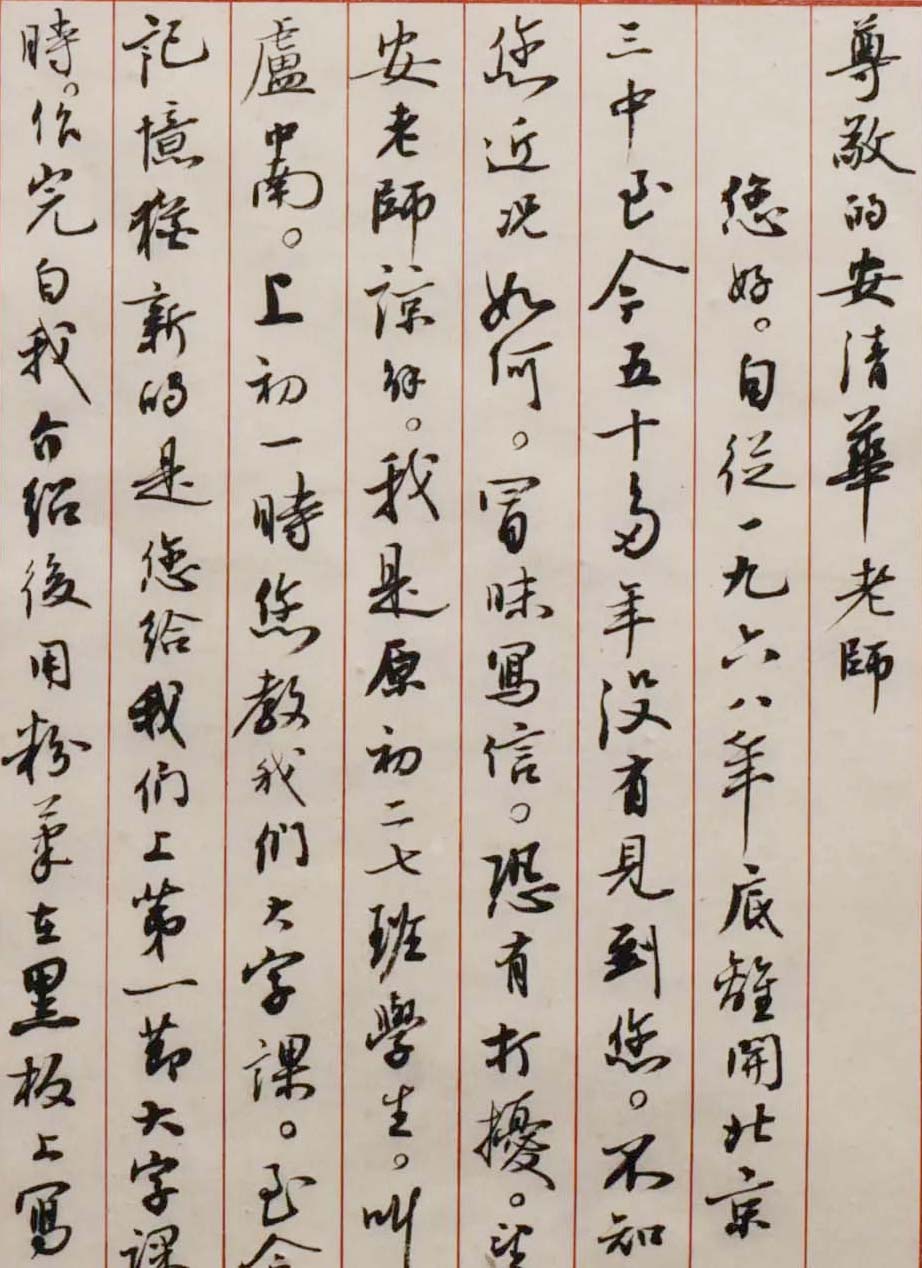 尊敬的安清華老師
您好。自從一九六八年底離開北京
三中至今五十多年没有見到您。不知
您近况如何。冒昧寫信。恐有打擾。望
安老師諒解。我是原初二七班學生。叫
盧中南。上初一時您教我们大字課。至今
記憶猶新的是您给我们上第一節大字課
時。作完自我介紹後用粉筆在黑板上寫